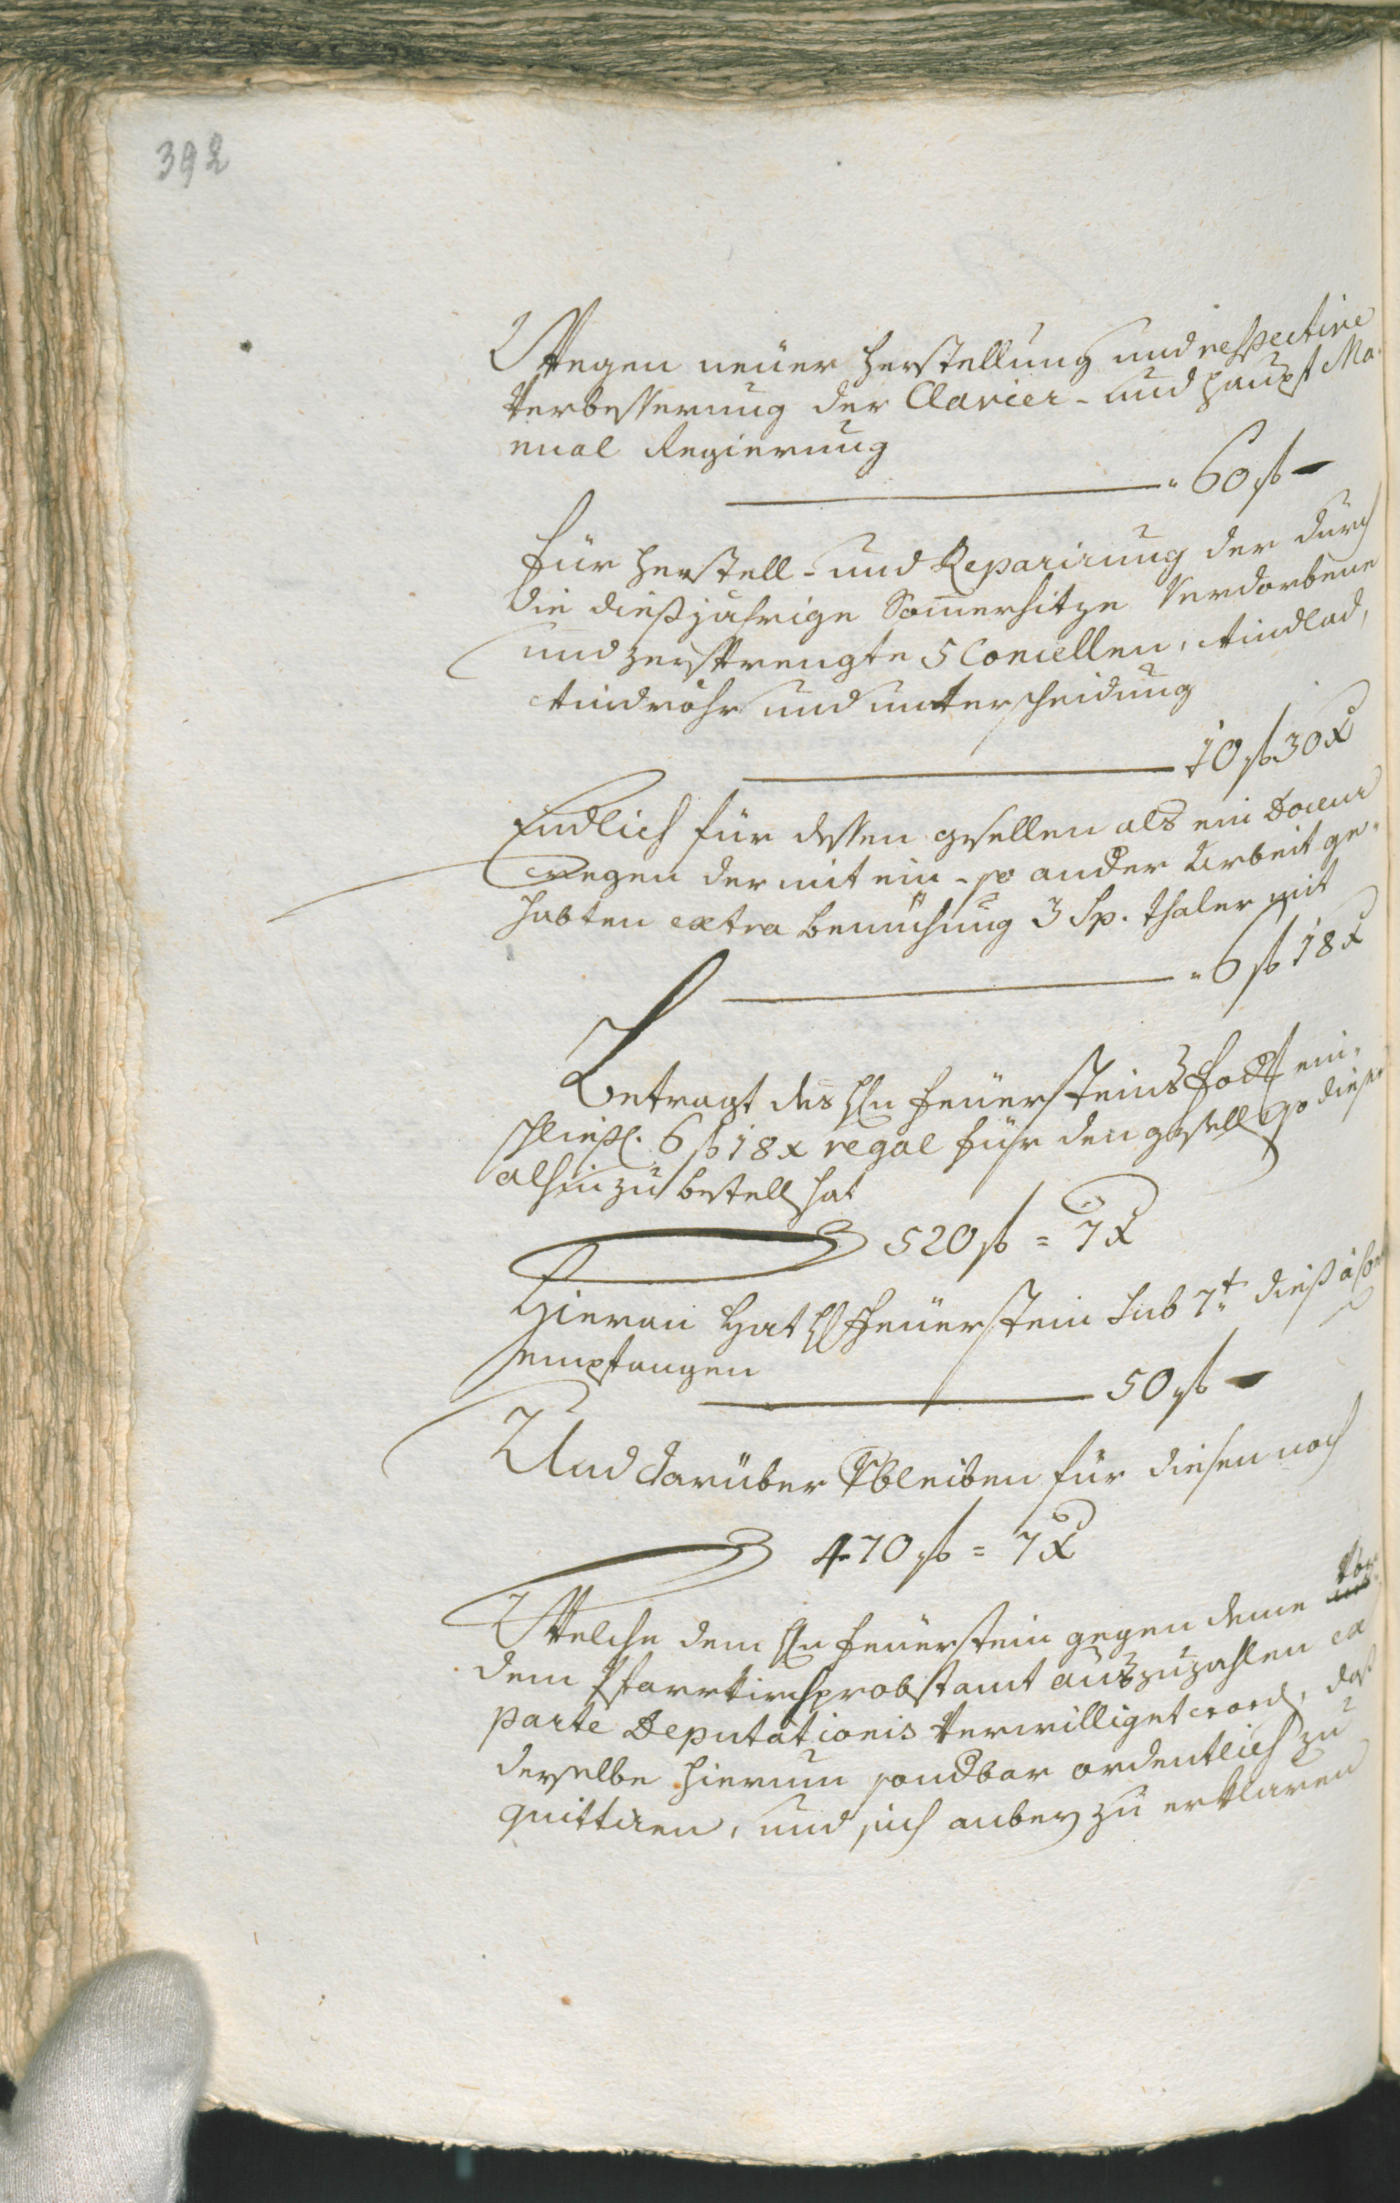 392
Wegen neuer herstellung und respective
Verbesserung der Clavier- und haupt Ma-
nual Regierung
60 f –
für herstell- und Reparirung der durch
die dießjahrige Somerhitze Verdorbene
und zersprengte 5 Concellen, Windlad,
Windröhr und unterscheidung
10 f 30 x
Endlich für dessen gsellen als ein Doceur
wegen der mit ein- so ander Arbeit ge-
habten extra bemühung 3 Sp. thaler mit
6 f 18 x
Betragt des Hn feuersteins ein-
schließl. 6 f 18 x regal für den gesell so diese
alhin zu bestell hat
520 f = 7 x
Hieran Hat H feuerstein sub 7t dieß
empfangen
50 f –
Und darüber Vbleiben für diesen noch
470 f = 7 x
Welche dem Hn feuerstein gegen deme
dem Pfarrkirchprobstamt auszuzahlen ex
parte Deputationis Verwilliget word, daß
derselbe hierum sondbar ordentlich zu
quittiren, und sich anbey zu erklären